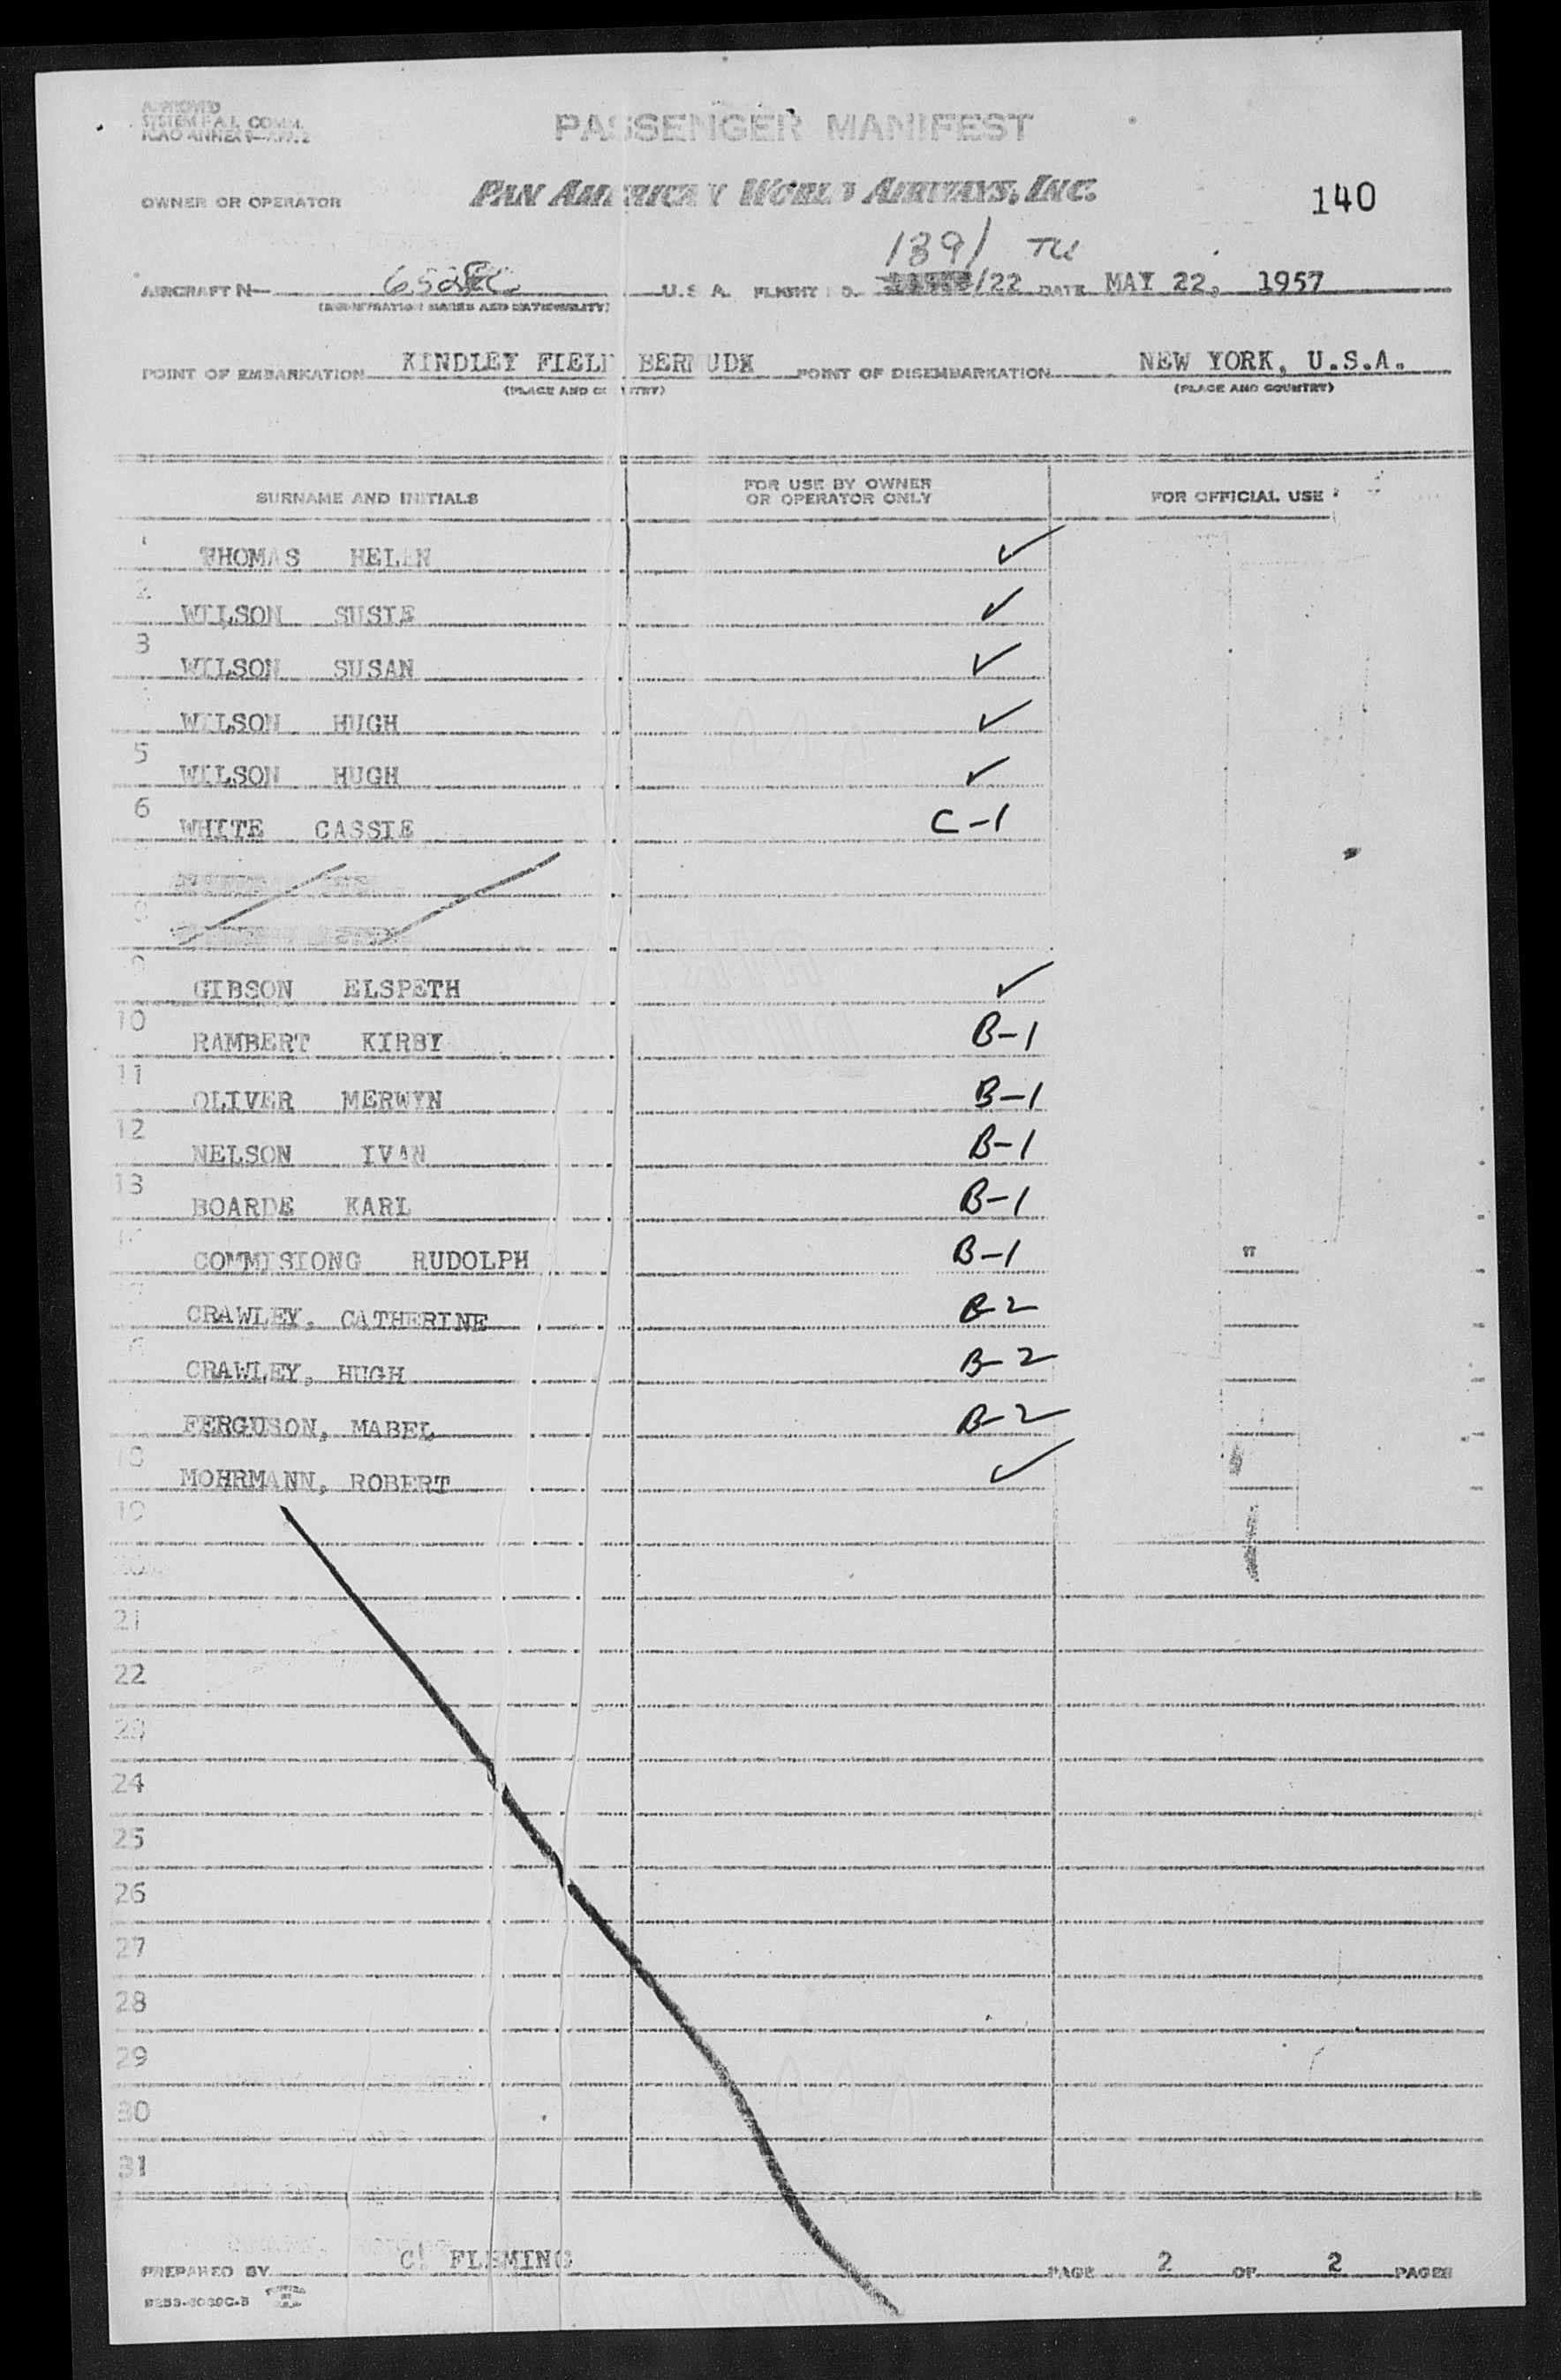 APPROVED
SYSTEM F.A.L. COMM.
ICAO ANNEX 9—APP. 2
PASSENGER MANIFEST
OWNER OR OPERATOR PAN AMERICAN WORLD AIRWAYS, INC.
140
1391 TU
AIRCRAFT N— U.S.A. FLIGHT NO. /22 DATE MAY 22, 1957
(REGISTRATION MARKS AND NATIONALITY)
POINT OF EMBARKATION KINDLEY FIELD BERMUDA POINT OF DISEMBARKATION NEW YORK, U.S.A.
(PLACE AND COUNTRY) (PLACE AND COUNTRY)
SURNAME AND INITIALS FOR USE BY OWNER OR OPERATOR ONLY FOR OFFICIAL USE
THOMAS HELEN ✓
2 WILSON SUSIE ✓
3 WILSON SUSAN ✓
WILSON HUGH ✓
5 WILSON HUGH ✓
6 WHITE CASSIE C-1
8
9 GIBSON ELSPETH ✓
10 RAMBERT KIRBY B-1
11 OLIVER MERWYN B-1
12 NELSON IVAN B-1
13 BOARDE KARL B-1
COMMISIONG RUDOLPH B-1 "
CRAWLEY, CATHERINE B-2
CRAWLEY, HUGH B-2
FERGUSON, MABEL B-2
18 MOHRMANN, ROBERT ✓
19
20
21
22
23
24
25
26
27
28
29
30
31
PREPARED BY C. FLEMING PAGE 2 OF 2 PAGES